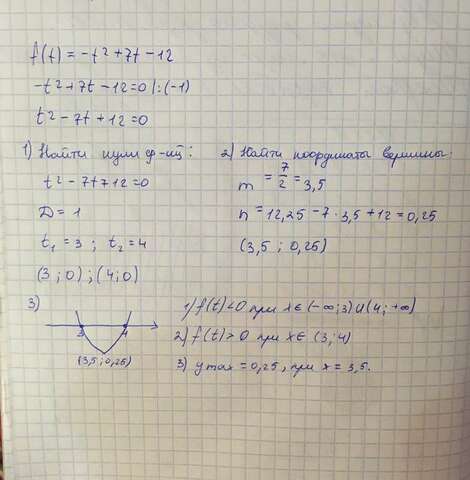 f(t) = -t² + 7t - 12
-t² + 7t - 12 = 0 | :(-1)
t² - 7t + 12 = 0
1) Найти нули ф-ии:
t² - 7t + 12 = 0
D = 1
t₁ = 3 ; t₂ = 4
(3 ; 0) ; (4; 0)
2) Найти координаты вершины:
m = 7/2 = 3,5
n = 12,25 - 7 · 3,5 + 12 = 0,25
(3,5 ; 0,25)
3)
3 4
(3,5 ; 0,25)
1) f(t) < 0 при x ∈ (-∞; 3) U (4; +∞)
2) f(t) > 0 при x ∈ (3; 4)
3) y max = 0,25, при x = 3,5.